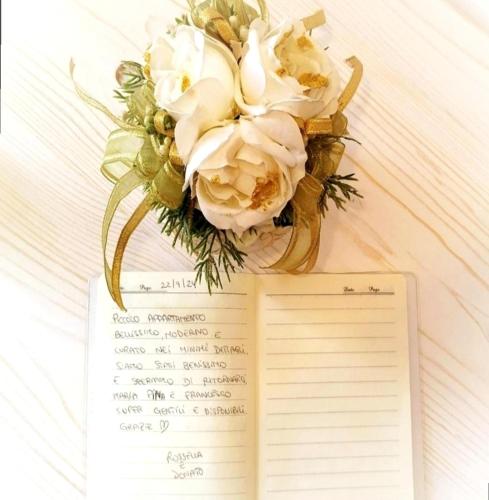 Page 22/9/24
Date Page
PICCOLO APPARTAMENTO
BELLISSIMO, MODERNO E
CURATO NEI MINIMI DETTAGLI,
SIAMO STATI BENISSIMO
E SPERIAMO DI RITORNARCI,
MARIA PINA E FRANCESCO
SUPER GENTILI E DISPONIBILI.
GRAZIE ♡
ROSSELLA
E
DONATO